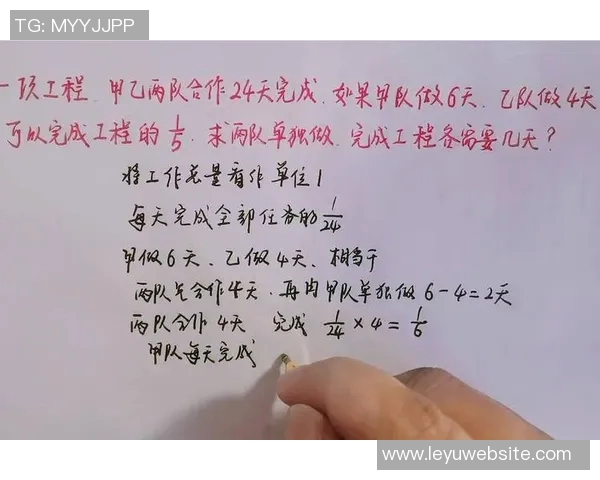 TG: MYYJJPP
一项工程,甲乙两队合作24天完成,如果甲队做6天、乙队做4天
可以完成工程的1/5.求两队单独做,完成工程各需要几天?
将工作总量看作单位1
每天完成全部任务的1/24
甲做6天、乙做4天、相当于
两队先合作4天,再由甲队单独做6-4=2天
两队合作4天 完成 1/24×4=1/6
甲队每天完成
www.leyuwebsite.com